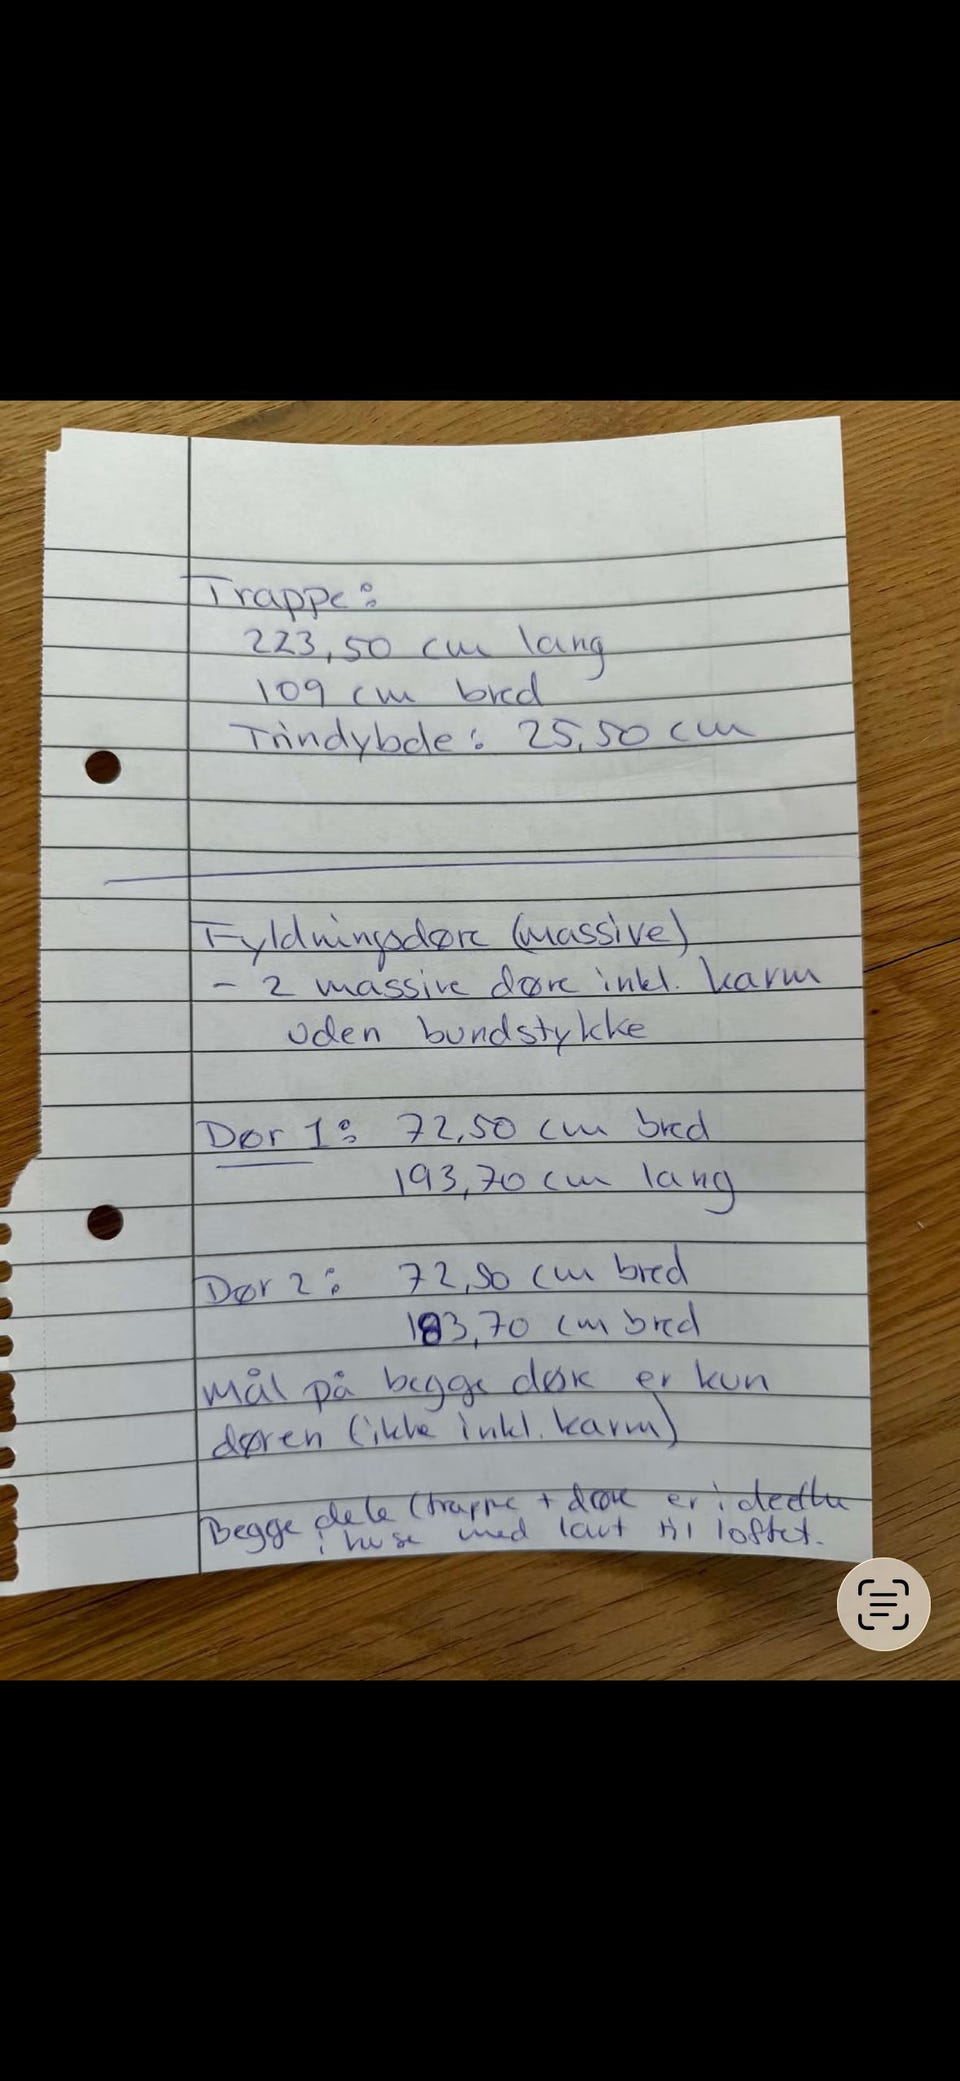 Trappe:
223,50 cm lang
109 cm bred
Trindybde: 25,50 cm
Fyldningsdøre (massive)
- 2 massive døre inkl. karm
uden bundstykke
Dør 1: 72,50 cm bred
193,70 cm lang
Dør 2: 72,50 cm bred
183,70 cm bred
mål på begge døre er kun
døren (ikke inkl. karm)
Begge dele (trappe + døre er ideelle
i huse med lavt til loftet.